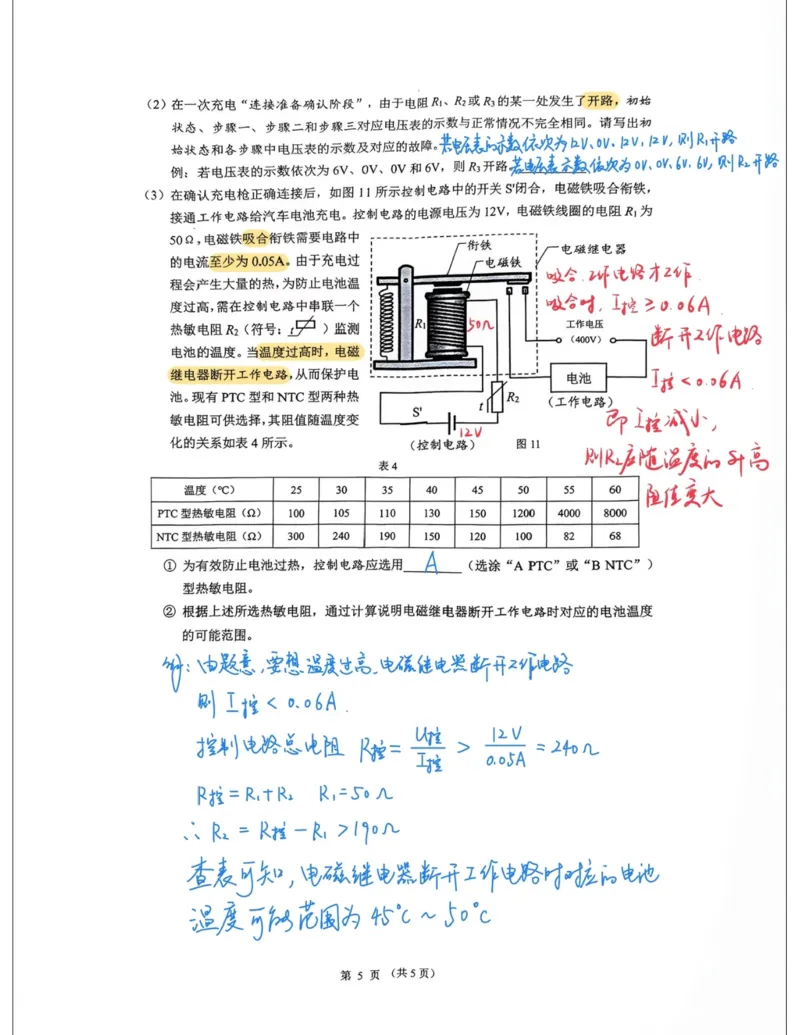 (2) 在一次充电“连接准备确认阶段”，由于电阻 R₁、R₂ 或 R₃ 的某一处发生了开路，初始
状态、步骤一、步骤二和步骤三对应电压表的示数与正常情况不完全相同。请写出初
始状态和各步骤中电压表的示数及对应的故障。若电压表的示数依次为12V、0V、12V、12V，则R₁开路
例：若电压表的示数依次为 6V、0V、0V 和 6V，则 R₃ 开路 若电压表示数依次为0V、0V、6V、6V，则R₂开路
(3) 在确认充电枪正确连接后，如图 11 所示控制电路中的开关 S'闭合，电磁铁吸合衔铁，
接通工作电路给汽车电池充电。控制电路的电源电压为 12V，电磁铁线圈的电阻 R₁ 为
50Ω，电磁铁吸合衔铁需要电路中
的电流至少为 0.05A。由于充电过
程会产生大量的热，为防止电池温
度过高，需在控制电路中串联一个
热敏电阻 R₂（符号：t）监测
电池的温度。当温度过高时，电磁
继电器断开工作电路，从而保护电
池。现有 PTC 型和 NTC 型两种热
敏电阻可供选择，其阻值随温度变
化的关系如表 4 所示。
衔铁
电磁铁
电磁继电器
R₁
50Ω
工作电压
（400V）
电池
（工作电路）
R₂
t
S'
12V
（控制电路）
图 11
吸合，工作电路才工作.
吸合时，I控≥0.06A.
断开工作电路
I控<0.06A.
即I控减小，
则R₂应随温度的升高
阻值变大
表 4
温度（℃） 25 30 35 40 45 50 55 60
PTC 型热敏电阻（Ω） 100 105 110 130 150 1200 4000 8000
NTC 型热敏电阻（Ω） 300 240 190 150 120 100 82 68
① 为有效防止电池过热，控制电路应选用 A （选涂“A PTC”或“B NTC”）
型热敏电阻。
② 根据上述所选热敏电阻，通过计算说明电磁继电器断开工作电路时对应的电池温度
的可能范围。
解：由题意，要想温度过高，电磁继电器断开工作电路
则 I控<0.06A.
控制电路总电阻 R控=U控/I控 > 12V/0.05A =240Ω
R控=R₁+R₂ R₁=50Ω
∴ R₂=R控-R₁>190Ω
查表可知，电磁继电器断开工作电路时对应的电池
温度可能范围为 45℃~50℃
第 5 页 （共5页）